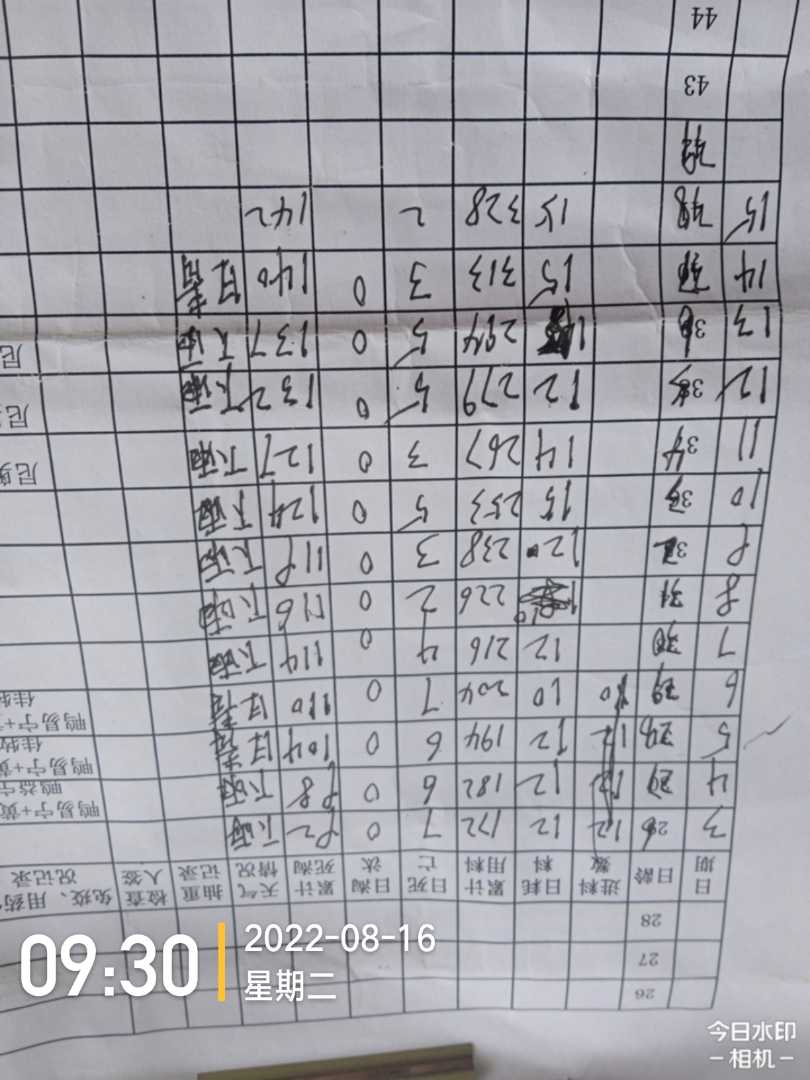 26
27
28
日期 日龄 进料数 日耗料 累计用料 日死亡 日淘汰 累计死淘 天气情况 抽重记录 检查人签 免疫、用药 况记录
3 26 12 12 172 7 0 92 下雨
鸭易宁+黄
4 12 12 182 6 0 98 下雨 鸭易宁
鸭易宁+黄
5 28 12 12 194 6 0 104 佳牧
鸭易宁+
6 29 10 204 7 0 110 佳牧
7 30 12 216 4 0 114 下雨
8 31 226 2 0 116 下雨
9 32 12 238 3 0 119 下雨
10 33 15 253 5 0 124 下雨
11 34 14 267 3 0 127 下雨 尼
12 12 279 5 0 132 下雨 尼
13 294 5 0 137 下雨 尼
14 15 313 3 0 140
15 15 328 2 142
43
44
09:30
2022-08-16
星期二
今日水印
-相机-